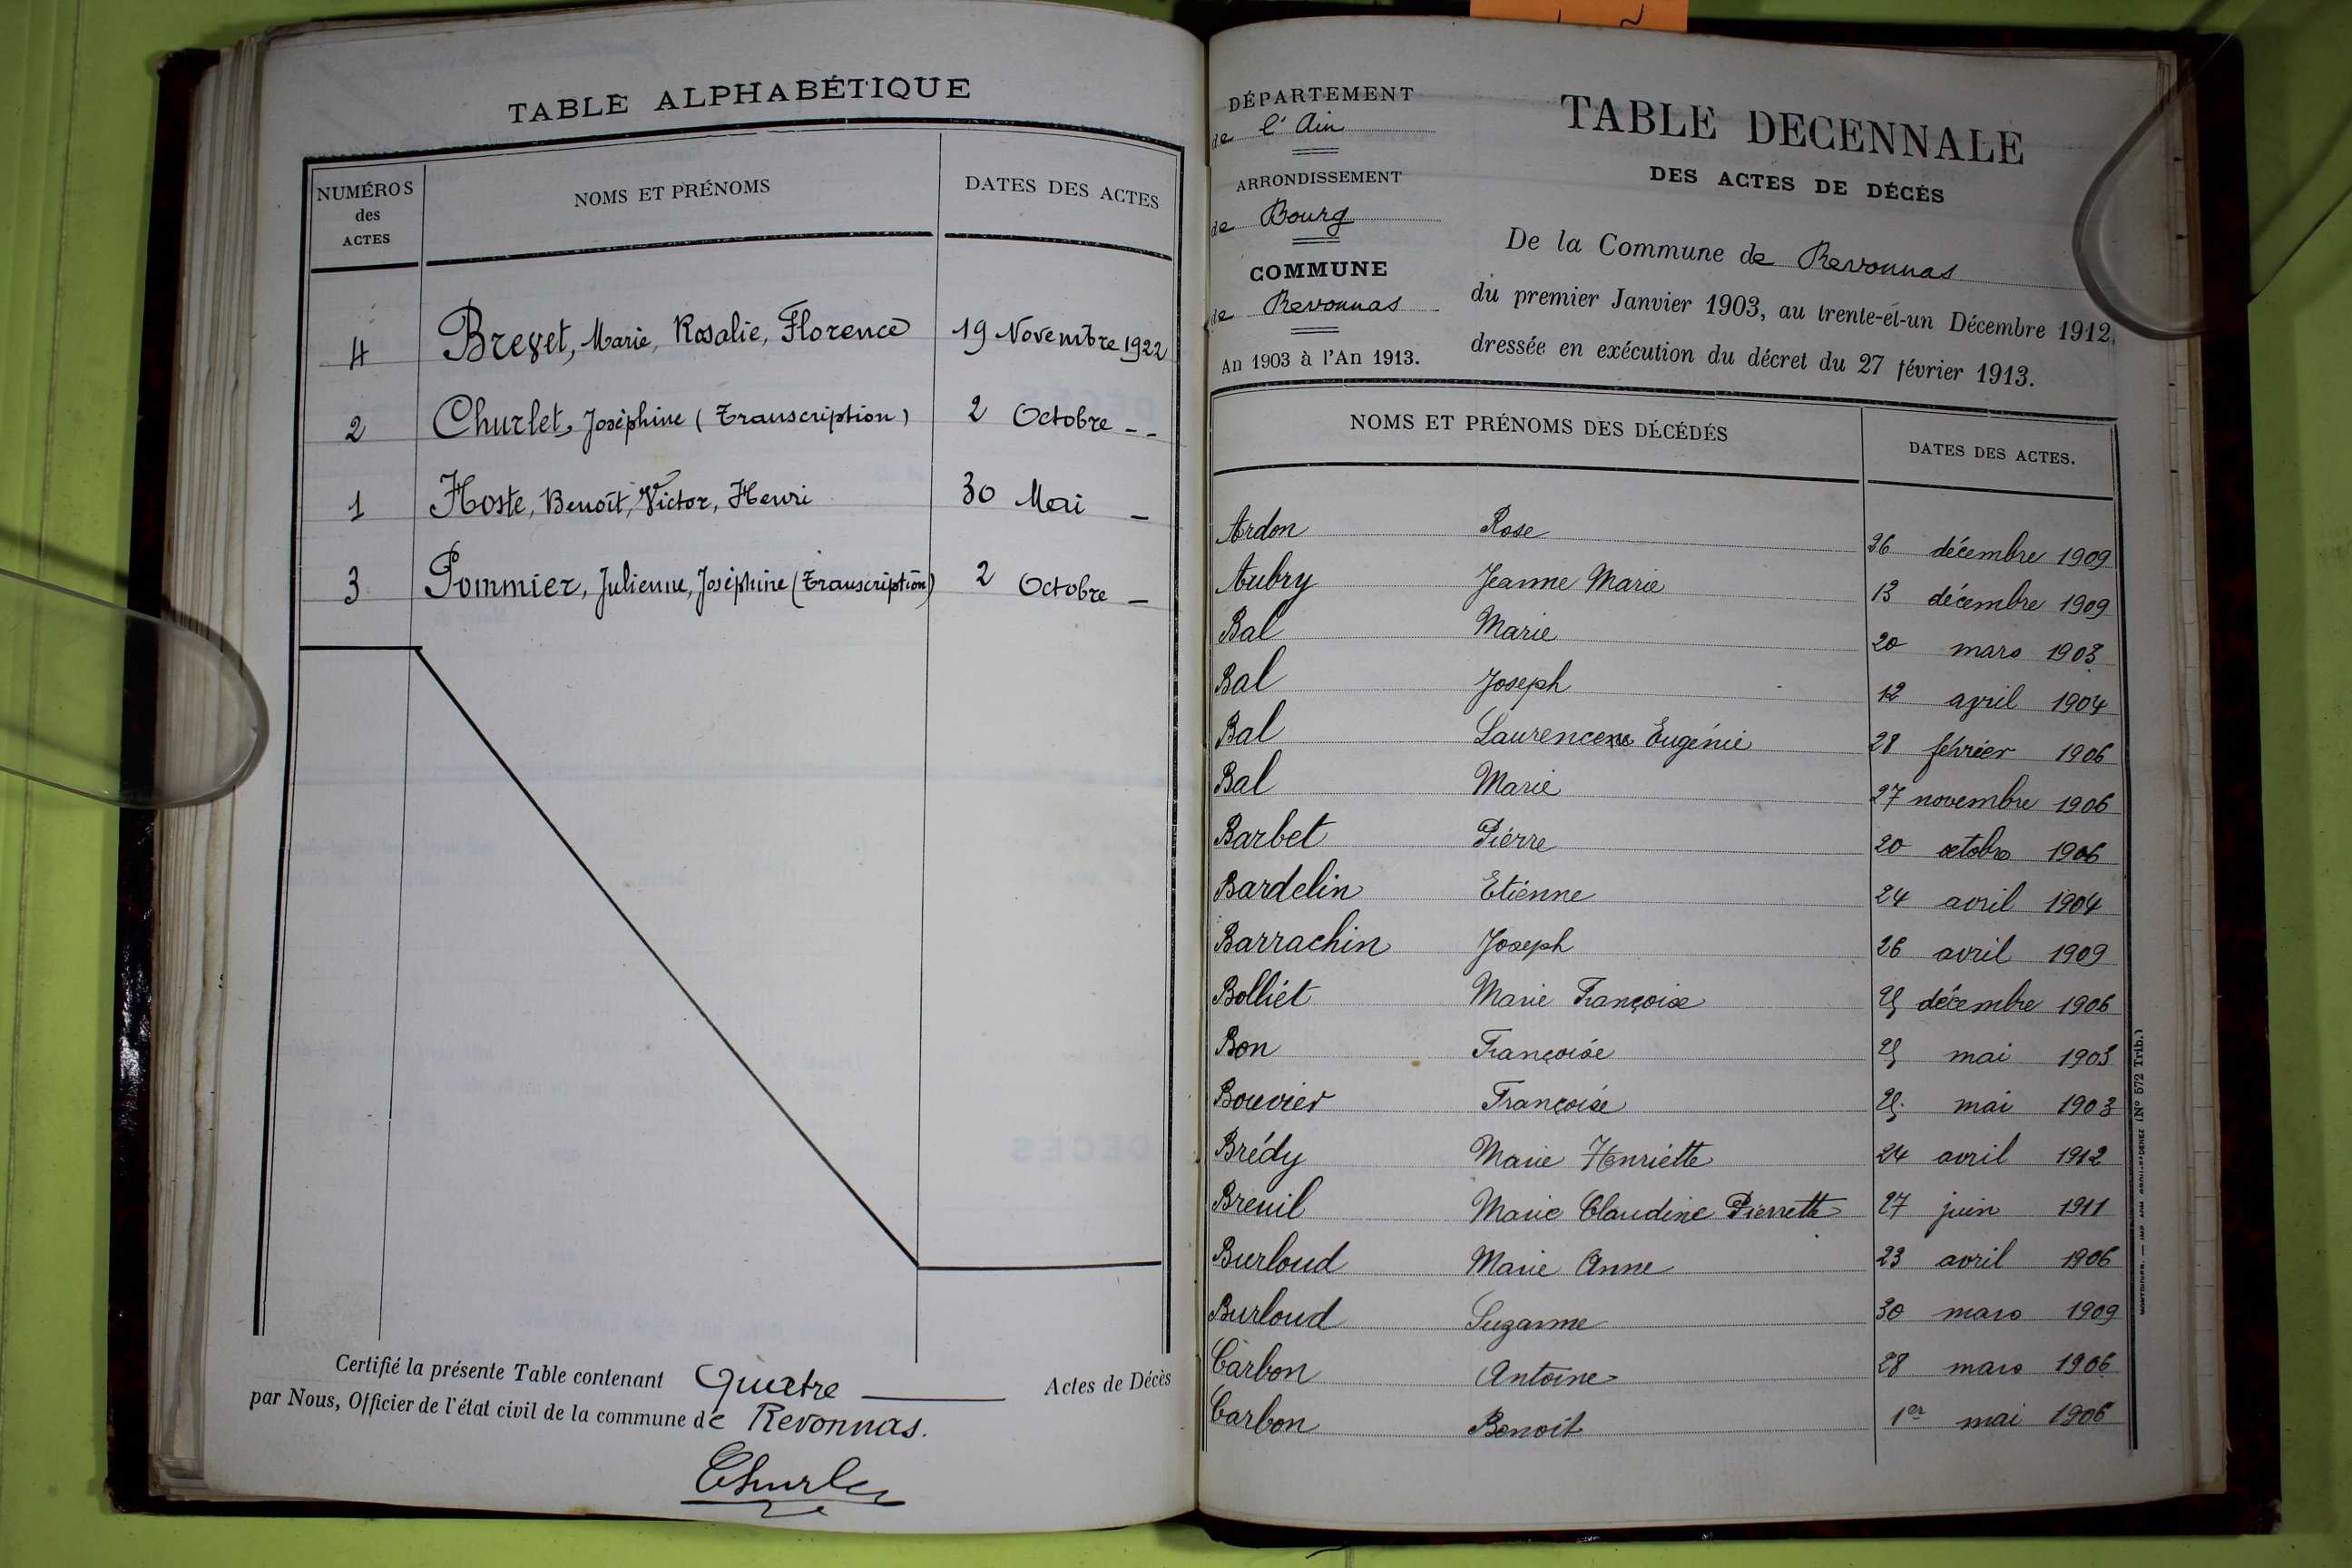 TABLE ALPHABÉTIQUE
NUMÉROS des ACTES NOMS ET PRÉNOMS DATES DES ACTES
4 Brevet, Marie, Rosalie, Florence 19 Novembre 1922
2 Churlet, Joséphine (Transcription) 2 Octobre - -
1 Hoste, Benoît, Victor, Henri 30 Mai -
3 Pommier, Julienne, Joséphine (Transcription) 2 Octobre -
Certifié la présente Table contenant Quatre Actes de Décès
par Nous, Officier de l'état civil de la commune de Revonnas.
Churlet
DÉPARTEMENT
de l'Ain
ARRONDISSEMENT
de Bourg
COMMUNE
de Revonnas
An 1903 à l'An 1913.
TABLE DECENNALE
DES ACTES DE DÉCÉS
De la Commune de Revonnas
du premier Janvier 1903, au trente-et-un Décembre 1912,
dressée en exécution du décret du 27 février 1913.
NOMS ET PRÉNOMS DES DÉCÉDÉS DATES DES ACTES.
Ardon Rose 26 décembre 1909
Aubry Jeanne Marie 13 décembre 1909
Bal Marie 20 mars 1903
Bal Joseph 12 avril 1904
Bal Eugénie 28 février 1906
Bal Marie 27 novembre 1906
Barbet Pierre 20 octobre 1906
Bardelin Etienne 24 avril 1904
Barrachin Joseph 26 avril 1909
Bolliet Marie Françoise 25 décembre 1906
Bon Françoise 25 mai 1903
Bouvier Françoise 25 mai 1903
Brédy Marie Henriette 24 avril 1912
Breuil Marie Claudine Pierrette 27 juin 1911
Burloud Marie Anne 23 avril 1906
Burloud Suzanne 30 mars 1909
Carbon Antoine 28 mars 1906
Carbon Benoit 1er mai 1906
(No 572 Trib.)